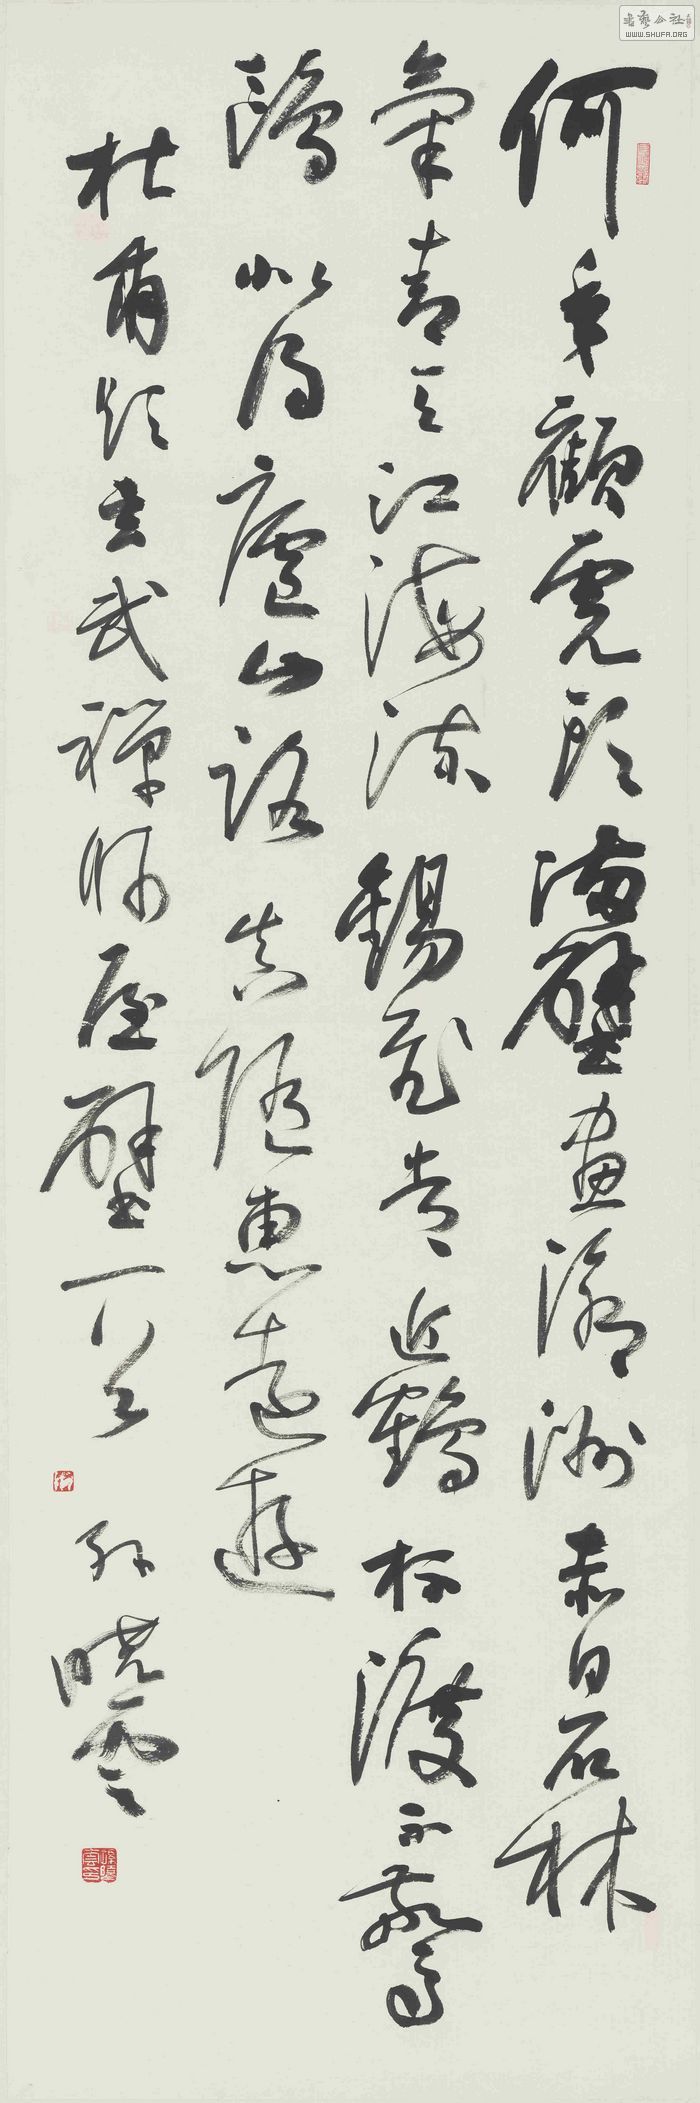 何年顧虎頭滿壁畫瀛洲赤日石林
氣青天江海流錫飛常近鶴杯渡不驚
鷗似得廬山路真隨惠遠遊
杜甫題玄武禪師屋壁一首
孫曉雲
書藝公社
WWW.SHUFA.ORG